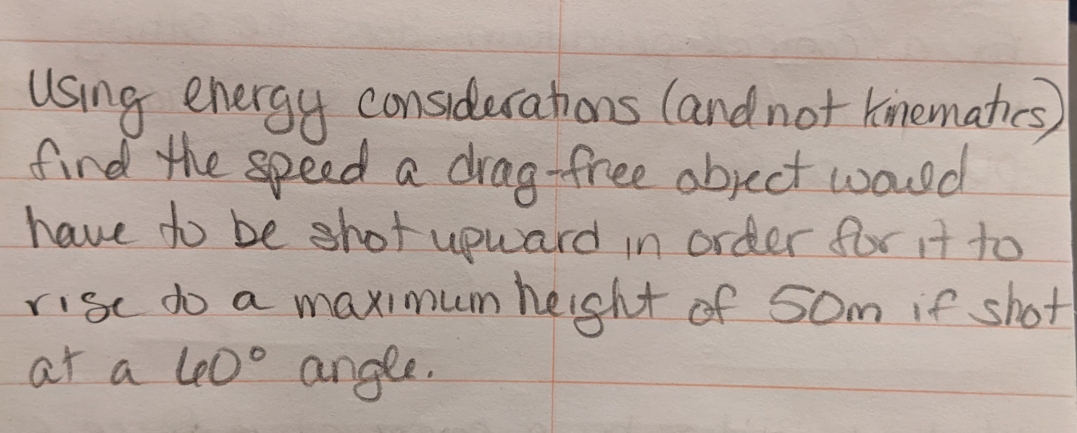 Using energy considerations (and not kinematics)
find the speed a drag-free object would
have to be shot upward in order for it to
rise to a maximum height of 50m if shot
at a 40° angle.